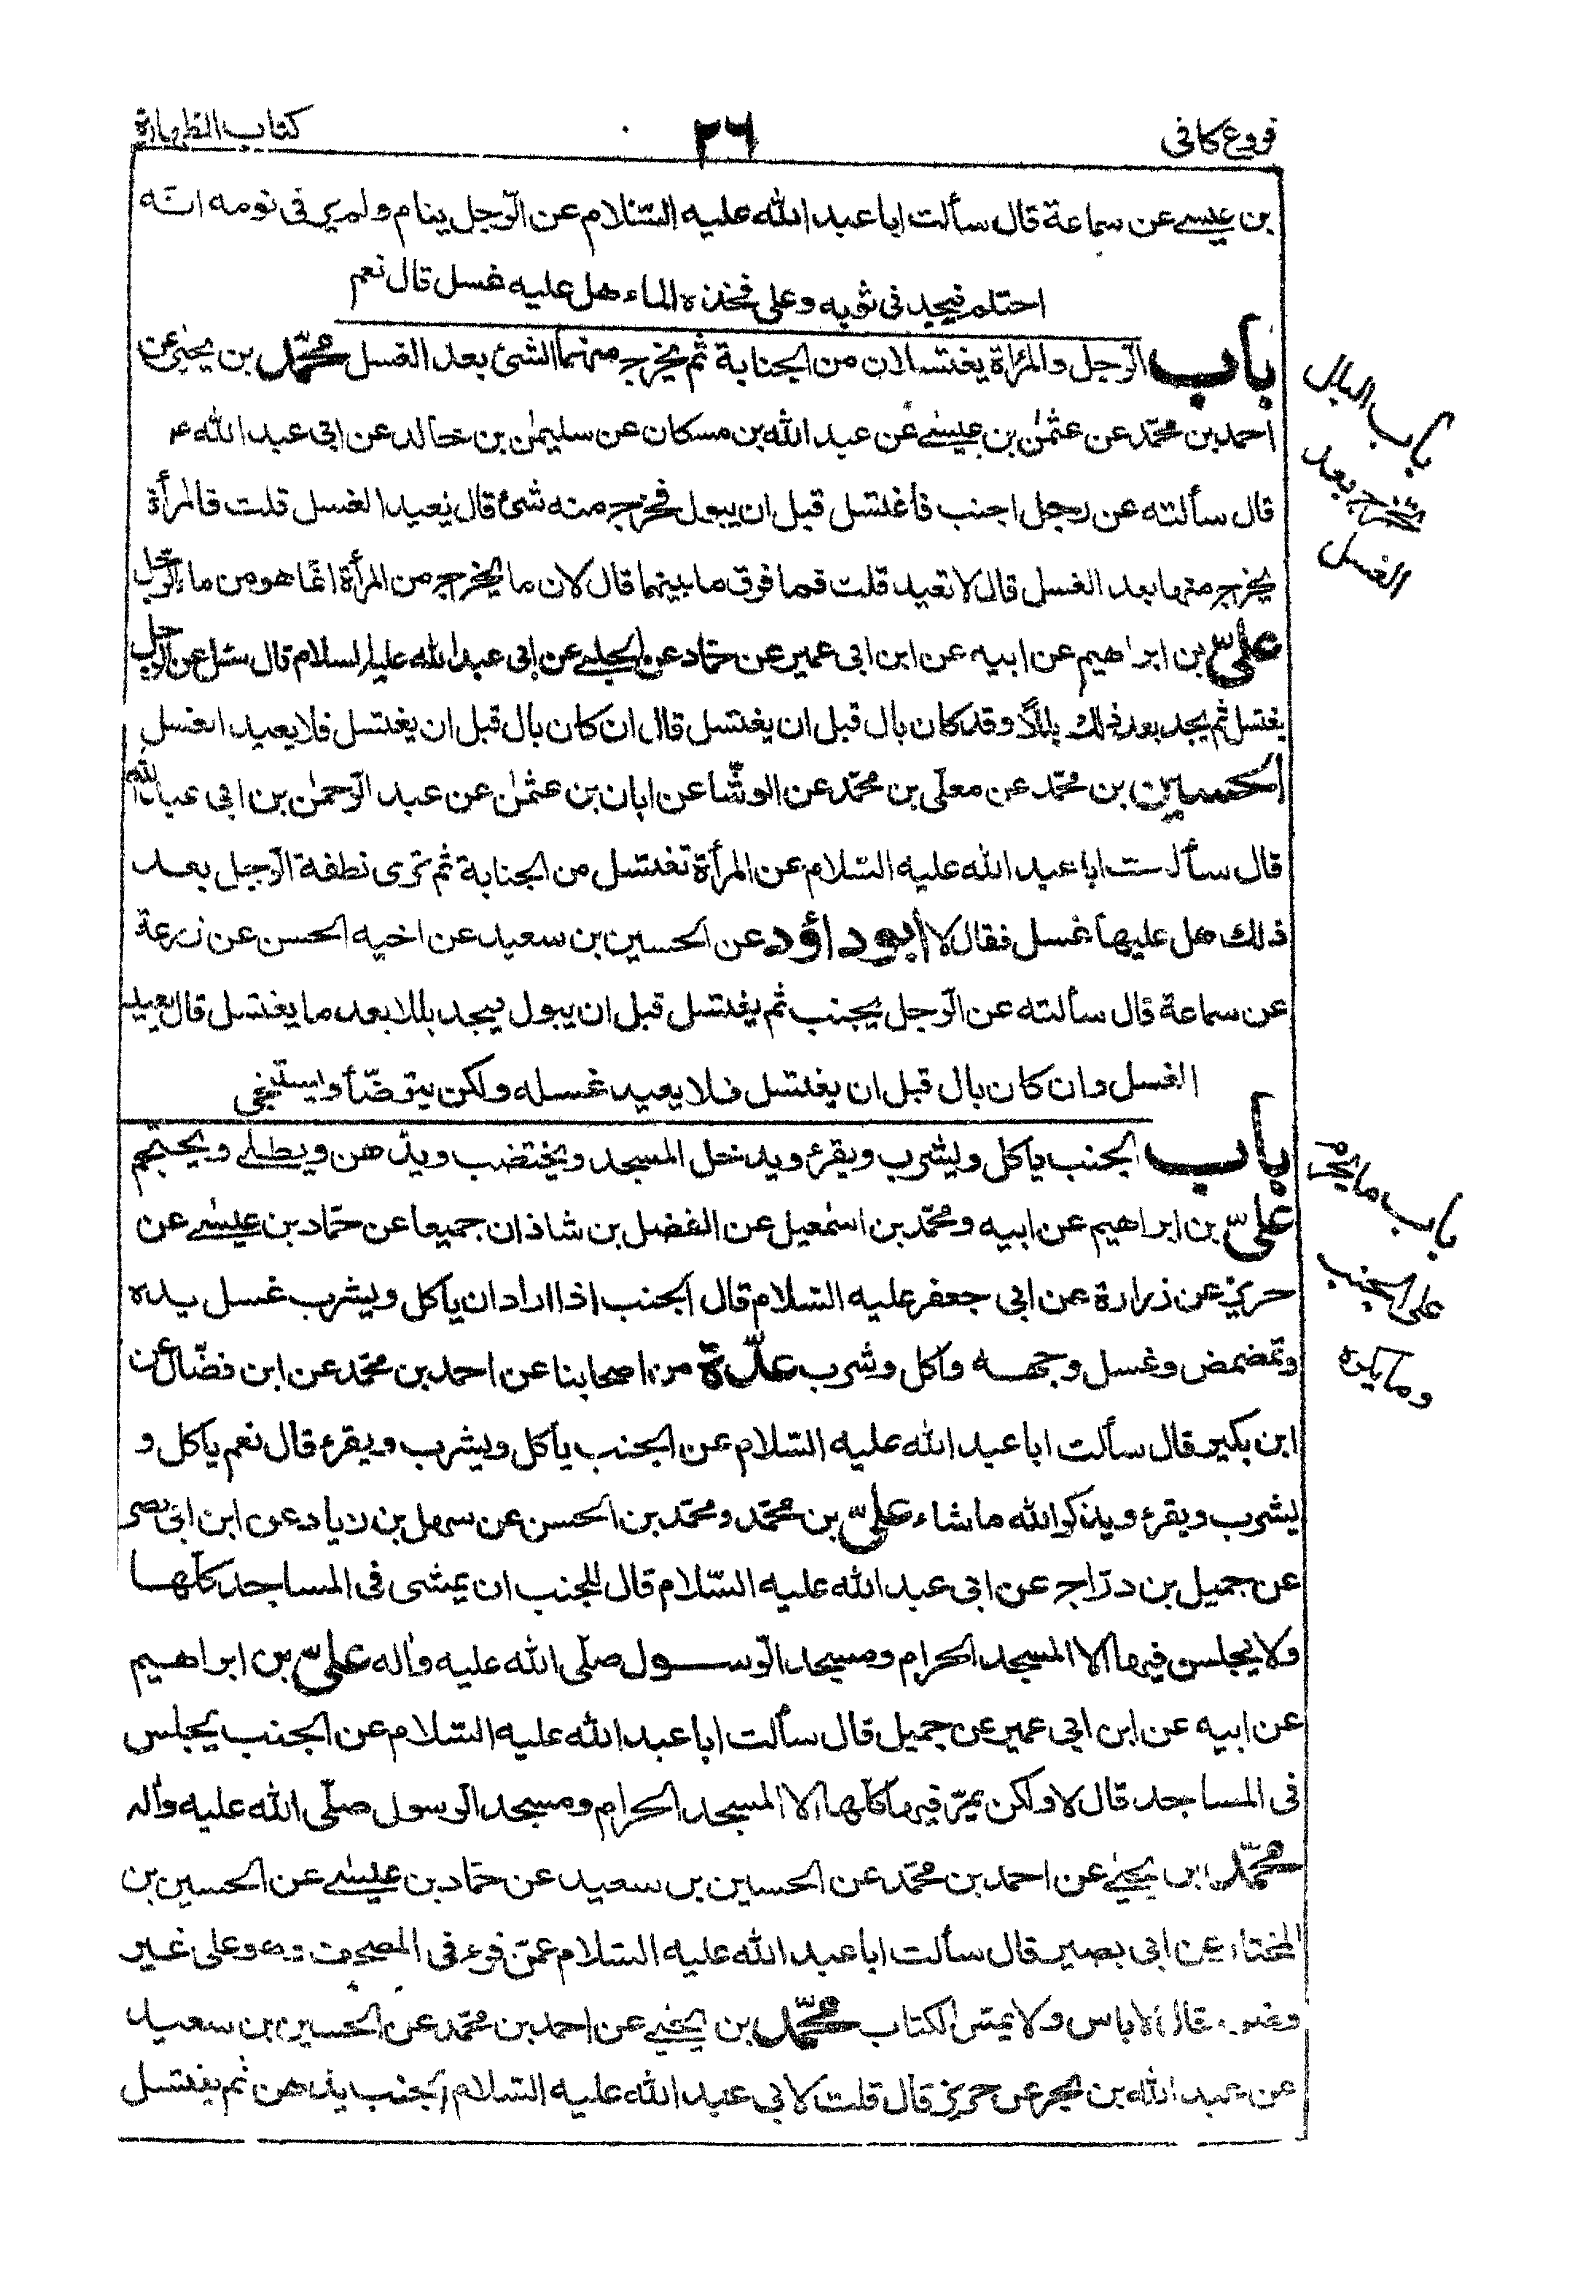 فروع كافى
٢٦
كتاب الطهارة
بن عيسى عن سماعة قال سألت ابا عبد الله عليه السّلام عن الرّجل ينام ولم ير فى نومه انّه
احتلم فيجد فى ثوبه وعلى فخذه الماء هل عليه غسل قال نعم
باب الرّجل والمرأة يغتسلان من الجنابة ثم يخرج منهما الشئ بعد الغسل محمّد بن يحيى عن
احمد بن محمّد عن عثمٰن بن عيسى عن عبد الله بن مسكان عن سليمٰن بن خالد عن ابى عبد الله ع
قال سألته عن رجل اجنب فأغتسل قبل ان يبول فخرج منه شئ قال يعيد الغسل قلت فالمرأة
يخرج منها بعد الغسل قال لا تعيد قلت فما فرق ما بينهما قال لان ما يخرج من المرأة انّما هو من ماء الرّجل
علىّ بن ابراهيم عن ابيه عن ابن ابى عمير عن حمّاد عن الحلبى عن ابى عبد الله عليه السلام قال سئل عن الرجل
يغتسل ثم يجد بعد ذلك بللاً وقد كان بال قبل ان يغتسل قال ان كان بال قبل ان يغتسل فلا يعيد الغسل
الحسين بن محمّد عن معلّى بن محمّد عن الوشّا عن ابان بن عثمٰن عن عبد الرّحمٰن بن ابى عبد الله
قال سألت ابا عبد الله عليه السّلام عن المرأة تغتسل من الجنابة ثم ترى نطفة الرّجل بعد
ذلك هل عليها غسل فقال لا أبو داؤد عن الحسين بن سعيد عن اخيه الحسن عن زرعة
عن سماعة قال سألته عن الرّجل يجنب ثم يغتسل قبل ان يبول فيجد بللا بعد ما يغتسل قال يعيد
الغسل وان كان بال قبل ان يغتسل فلا يعيد غسله ولكن يتوضّأ ويستنجى
باب الجنب ياكل ويشرب ويقرء ويدخل المسجد ويختضب ويدّهن ويطلى ويحتجم
علىّ بن ابراهيم عن ابيه ومحمّد بن اسمٰعيل عن الفضل بن شاذان جميعا عن حمّاد بن عيسى عن
حريز عن زرارة عن ابى جعفر عليه السّلام قال الجنب اذا اراد ان ياكل ويشرب غسل يده
وتمضمض وغسل وجهه واكل وشرب عدّة من اصحابنا عن احمد بن محمّد عن ابن فضّال عن
ابن بكير قال سألت ابا عبد الله عليه السّلام عن الجنب ياكل ويشرب ويقرء قال نعم ياكل و
يشرب ويقرء ويذكر الله ما شاء علىّ بن محمّد ومحمّد بن الحسن عن سهل بن زياد عن ابن ابى نصر
عن جميل بن درّاج عن ابى عبد الله عليه السّلام قال للجنب ان يمشى فى المساجد كلّها
ولا يجلس فيها الا المسجد الحرام ومسجد الرّسول صلّى الله عليه وآله علىّ بن ابراهيم
عن ابيه عن ابن ابى عمير عن جميل قال سألت ابا عبد الله عليه السّلام عن الجنب يجلس
فى المساجد قال لا ولكن يمرّ فيها كلّها الا المسجد الحرام ومسجد الرّسول صلّى الله عليه وآله
محمّد بن يحيى عن احمد بن محمّد عن الحسين بن سعيد عن حمّاد بن عيسى عن الحسين بن
المختار عن ابى بصير قال سألت ابا عبد الله عليه السّلام عمّن قرء فى المصحف وهو على غير
وضوء قال لا باس ولا يمسّ الكتاب محمّد بن يحيى عن احمد بن محمّد عن الحسين بن سعيد
عن عبد الله بن بحر عن حريز قال قلت لابى عبد الله عليه السّلام الجنب يدّهن ثم يغتسل
باب البلل
يخرج بعد
الغسل
باب ما يحرم
على الجنب
وما يكره